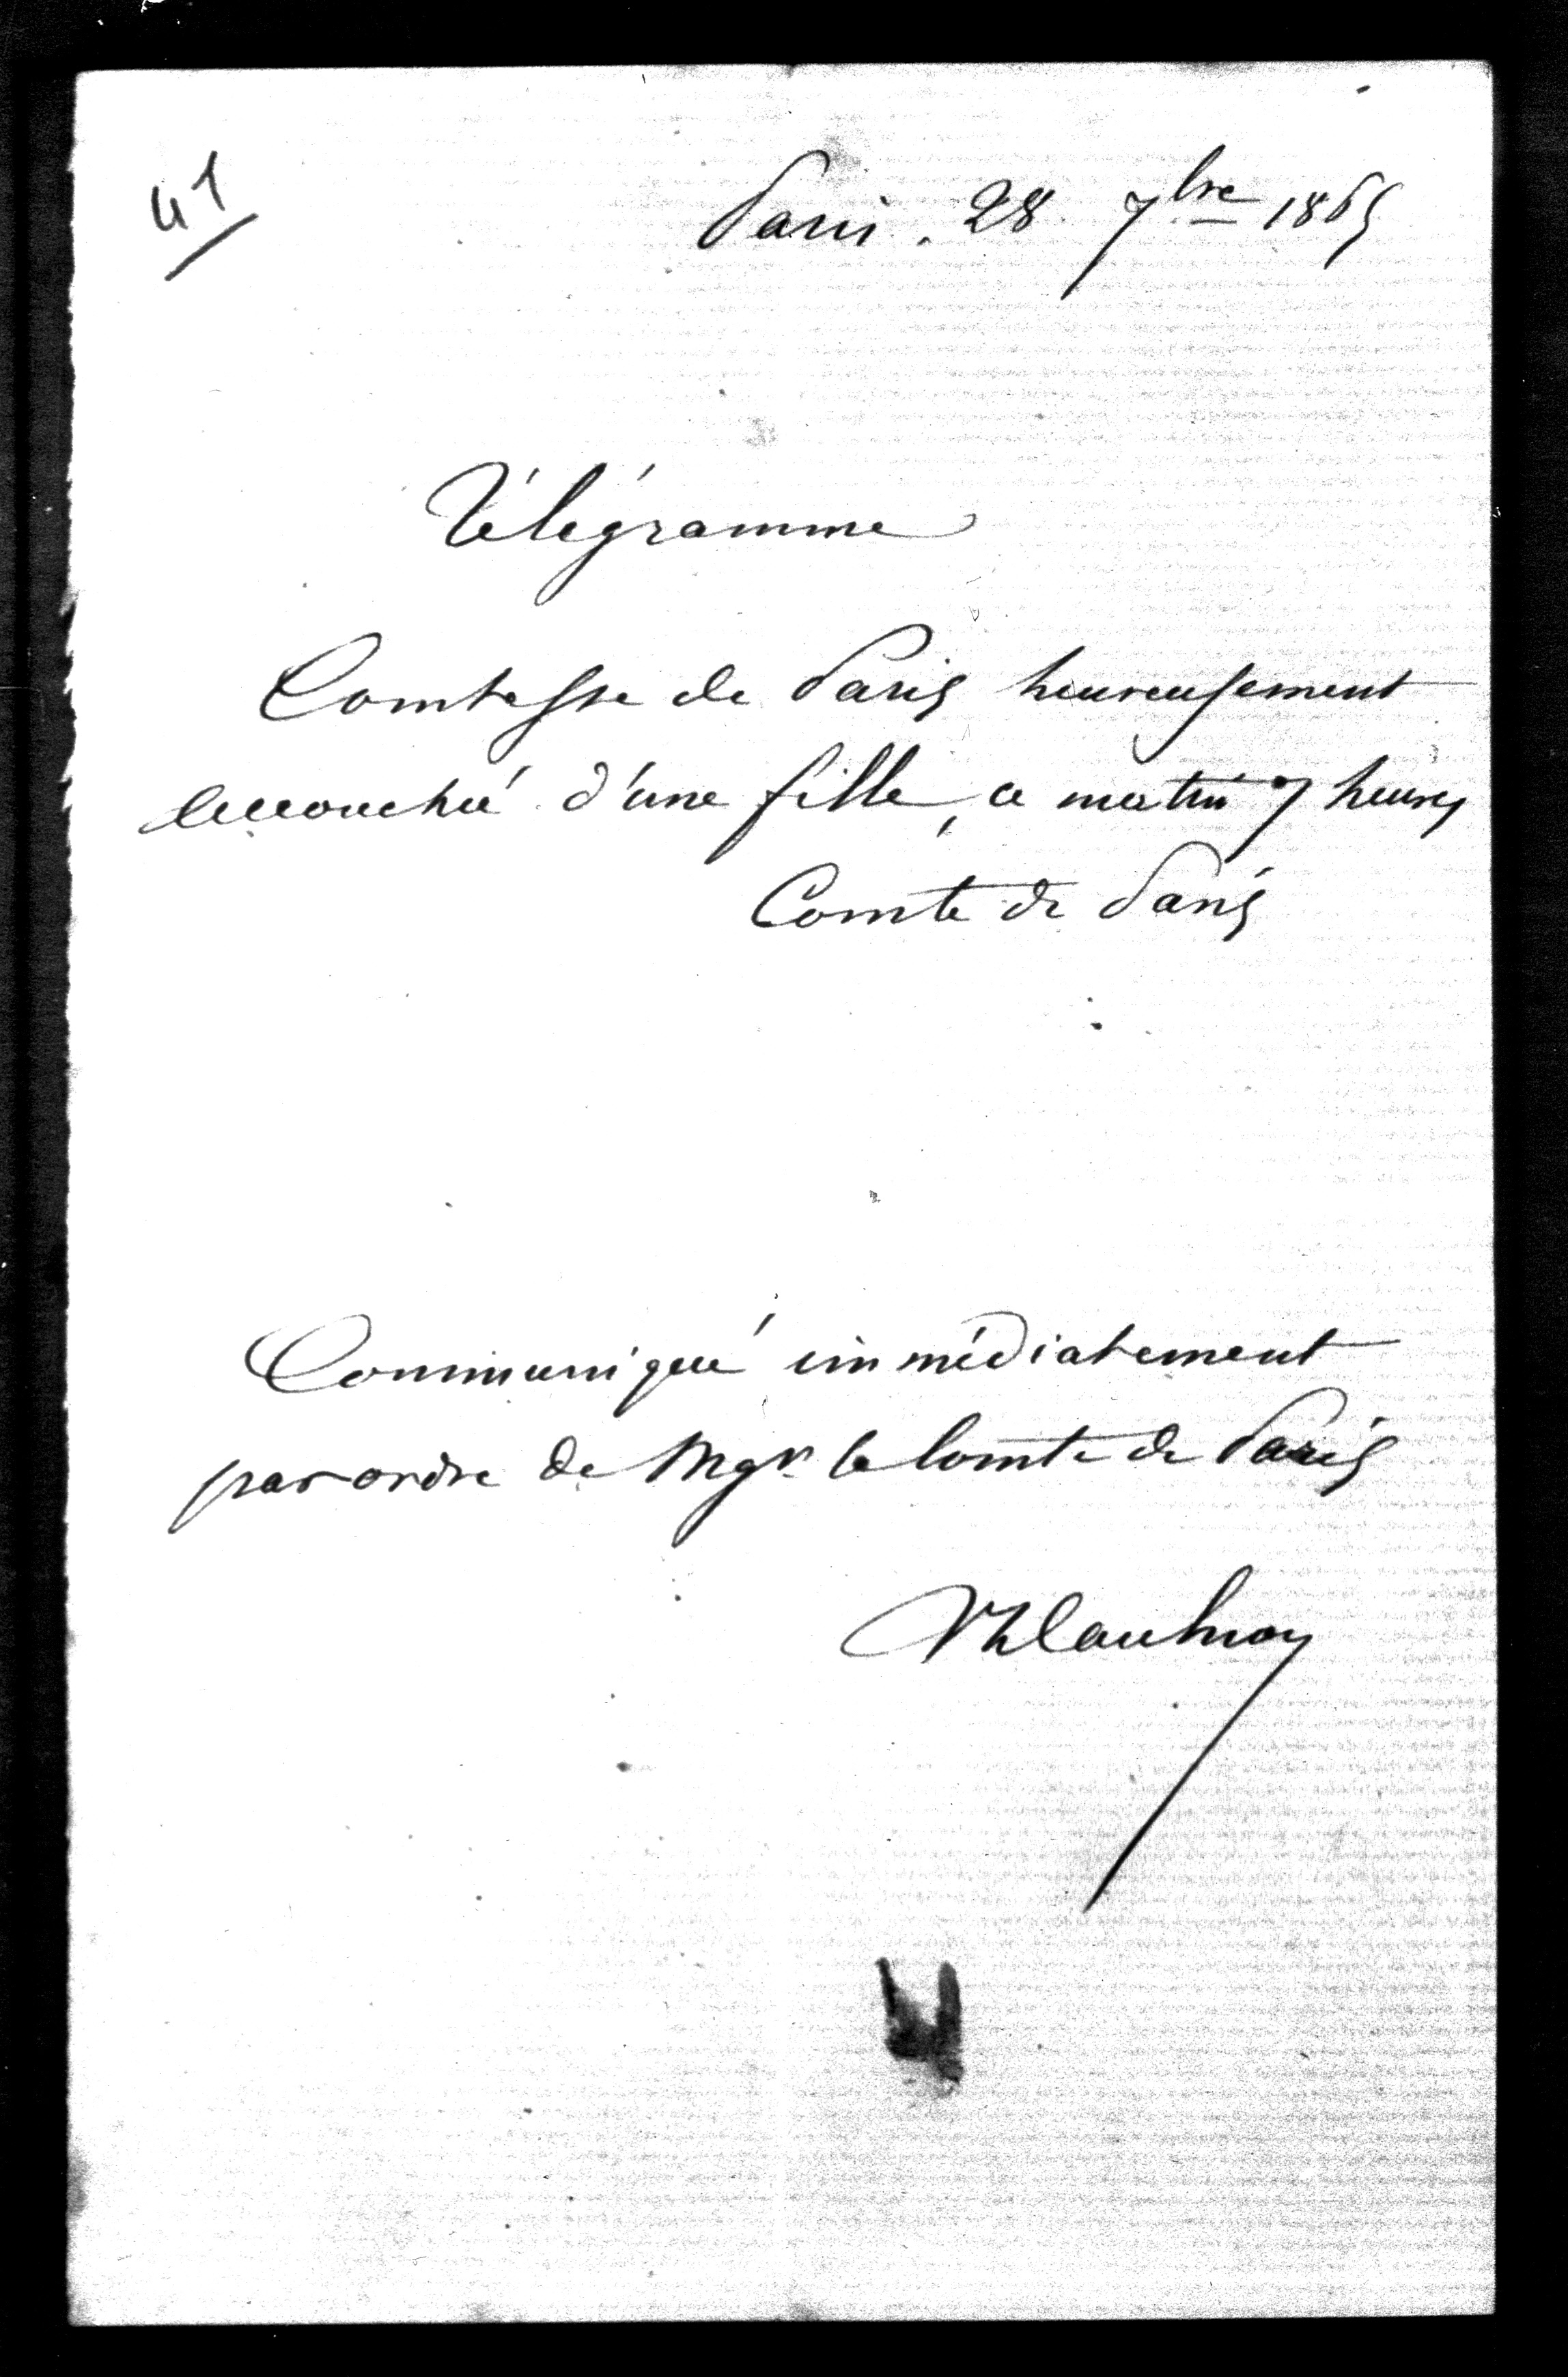 41
Paris. 28 7bre 1865
Télégramme
Comtesse de Paris heureusement
accouchée d'une fille, ce matin 7 heures
Comte de Paris
Communiqué immédiatement
par ordre de Mgr le Comte de Paris